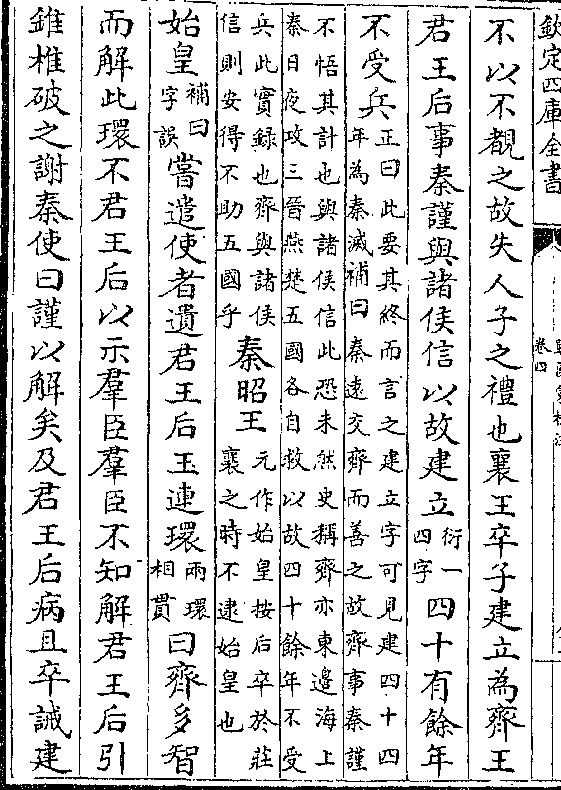 欽定四庫全書
卷四
不以不覩之故失人子之禮也襄王卒子建立為齊王
君王后事秦謹與諸侯信以故建立衍一四字四十有餘年
不受兵正曰此要其終而言之建立字可見建四十四年為秦滅補曰秦遠交齊而善之故齊事秦謹
不悟其計也與諸侯信此恐未然史稱齊亦東邊海上秦日夜攻三晉燕楚五國各自救以故四十餘年不受
兵此實録也齊與諸侯信則安得不助五國乎秦昭王元作始皇按后卒於莊襄之時不逮始皇也
始皇補曰字誤嘗遣使者遺君王后玉連環兩環相貫曰齊多智
而解此環不君王后以示羣臣羣臣不知解君王后引
錐椎破之謝秦使曰謹以解矣及君王后病且卒誡建